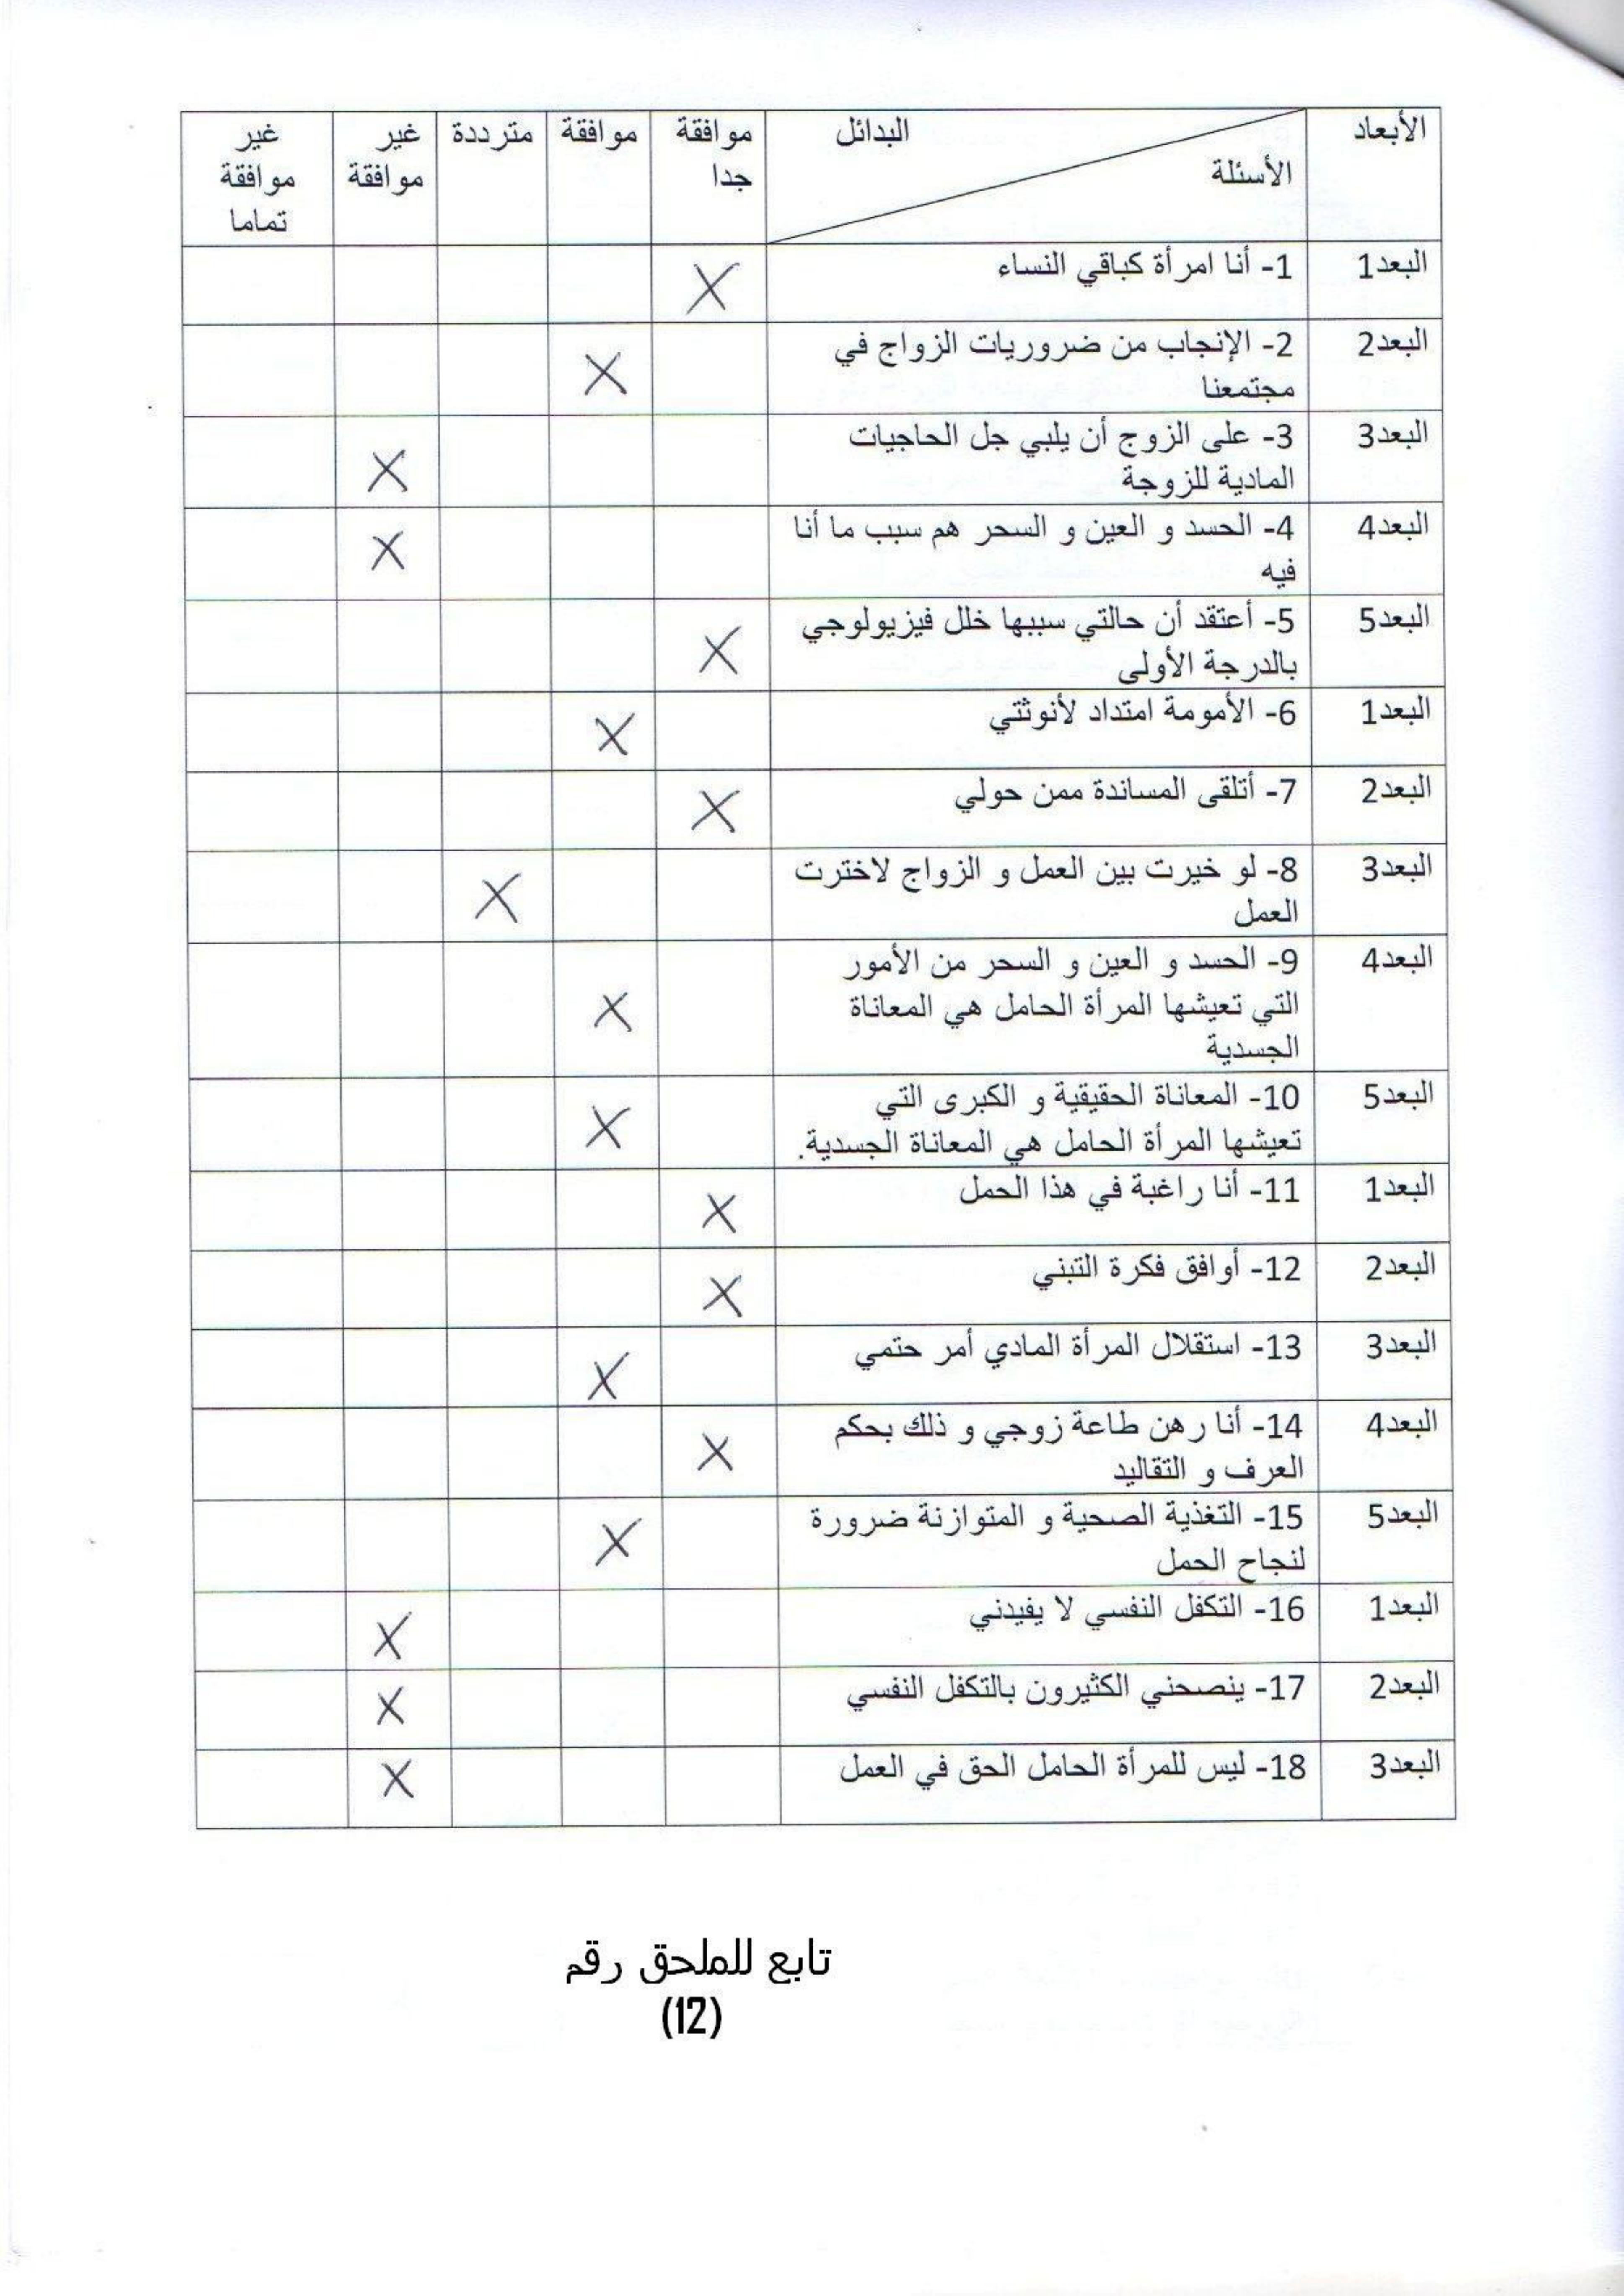 الأبعاد البدائل موافقة موافقة مترددة غير غير
الأسئلة جدا موافقة موافقة
تماما
البعد1 1- أنا امرأة كباقي النساء X
البعد2 2- الإنجاب من ضروريات الزواج في
مجتمعنا X
البعد3 3- على الزوج أن يلبي جل الحاجيات
المادية للزوجة X
البعد4 4- الحسد و العين و السحر هم سبب ما أنا
فيه X
البعد5 5- أعتقد أن حالتي سببها خلل فيزيولوجي
بالدرجة الأولى X
البعد1 6- الأمومة امتداد لأنوثتي X
البعد2 7- أتلقى المساندة ممن حولي X
البعد3 8- لو خيرت بين العمل و الزواج لاخترت
العمل X
البعد4 9- الحسد و العين و السحر من الأمور
التي تعيشها المرأة الحامل هي المعاناة X
الجسدية
البعد5 10- المعاناة الحقيقية و الكبرى التي
تعيشها المرأة الحامل هي المعاناة الجسدية. X
البعد1 11- أنا راغبة في هذا الحمل X
البعد2 12- أوافق فكرة التبني X
البعد3 13- استقلال المرأة المادي أمر حتمي X
البعد4 14- أنا رهن طاعة زوجي و ذلك بحكم
العرف و التقاليد X
البعد5 15- التغذية الصحية و المتوازنة ضرورة
لنجاح الحمل X
البعد1 16- التكفل النفسي لا يفيدني X
البعد2 17- ينصحني الكثيرون بالتكفل النفسي X
البعد3 18- ليس للمرأة الحامل الحق في العمل X
تابع للملحق رقم
(12)